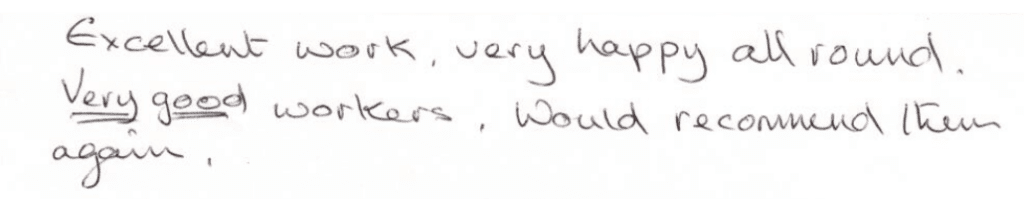 Excellent work, very happy all round.
Very good workers. Would recommend them
again.